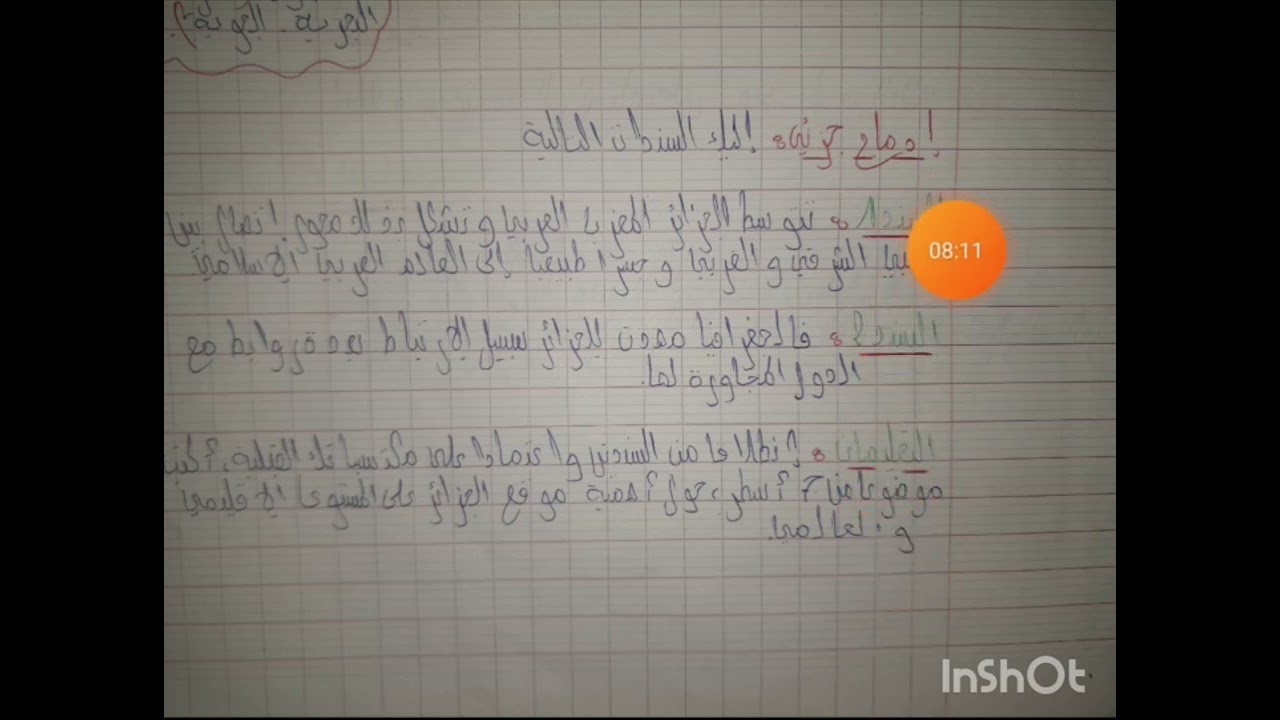 البحرية - الجوية
إدماج جزئي: إليك السندات التالية
السند 1: تتوسط الجزائر المغرب العربي و تشكل بذلك محور اتصال بين
الشرقي و الغربي و جسرا طبيعيا إلى العالم العربي الإسلامي
السند 2: فالجغرافيا مهدت للجزائر سبيل الارتباط بعدة روابط مع
الدول المجاورة لها.
التعليمات: انطلاقا من السندين و اعتمادا على مكتسباتك القبلية، أكتب
موضوعا من أسطر حول أهمية موقع الجزائر على المستوى الإقليمي
و العالمي.
08:11
InShOt